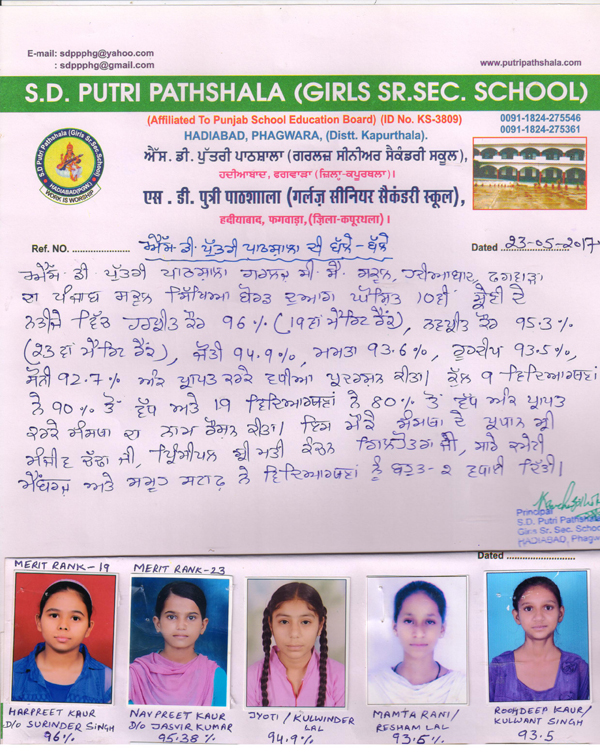 E-mail: sdppphg@yahoo.com
: sdpppg@gmail.com
www.putripathshala.com
S.D. PUTRI PATHSHALA (GIRLS SR.SEC. SCHOOL)
(Affiliated To Punjab School Education Board) (ID No. KS-3809)
0091-1824-275546
HADIABAD, PHAGWARA, (Distt. Kapurthala).
0091-1824-275361
ਐੱਸ. ਡੀ. ਪੁੱਤਰੀ ਪਾਠਸ਼ਾਲਾ (ਗਰਲਜ਼ ਸੀਨੀਅਰ ਸੈਕੰਡਰੀ ਸਕੂਲ),
ਹਦੀਆਬਾਦ, ਫਗਵਾੜਾ (ਜ਼ਿਲ੍ਹਾ-ਕਪੂਰਥਲਾ)।
एस . डी. पुत्री पाठशाला (गर्लज़ सीनियर सैकंडरी स्कूल),
हदीयाबाद, फगवाड़ा, (ज़िला-कपूरथला)।
S.D. Putri Pathshala (Girls Sr.Sec.School)
HADIABAD(PGW)
WORK IS WORSHIP
Ref. NO. ਐੱਸ. ਡੀ. ਪੁੱਤਰੀ ਪਾਠਸ਼ਾਲਾ ਦੀ ਬੱਲੇ-ਬੱਲੇ Dated 23-05-2017
ਐੱਸ. ਡੀ. ਪੁੱਤਰੀ ਪਾਠਸ਼ਾਲਾ ਗਰਲਜ਼ ਸੀ. ਸੈ. ਸਕੂਲ, ਹਦੀਆਬਾਦ, ਫਗਵਾੜਾ
ਦਾ ਪੰਜਾਬ ਸਕੂਲ ਸਿੱਖਿਆ ਬੋਰਡ ਦੁਆਰਾ ਘੋਸ਼ਿਤ 10ਵੀਂ ਸ਼੍ਰੇਣੀ ਦੇ
ਨਤੀਜੇ ਵਿੱਚ ਹਰਪ੍ਰੀਤ ਕੌਰ 96% (19ਵਾਂ ਮੈਰਿਟ ਰੈਂਕ), ਨਵਪ੍ਰੀਤ ਕੌਰ 95.3%
(23ਵਾਂ ਮੈਰਿਟ ਰੈਂਕ), ਜੋਤੀ 94.9%, ਮਮਤਾ 93.6%, ਰੂਹਦੀਪ 93.5%,
ਸੋਨੀ 92.7% ਅੰਕ ਪ੍ਰਾਪਤ ਕਰਕੇ ਵਧੀਆ ਪ੍ਰਦਰਸ਼ਨ ਕੀਤਾ। ਕੁੱਲ 9 ਵਿਦਿਆਰਥਣਾਂ
ਨੇ 90% ਤੋਂ ਵੱਧ ਅਤੇ 19 ਵਿਦਿਆਰਥਣਾਂ ਨੇ 80% ਤੋਂ ਵੱਧ ਅੰਕ ਪ੍ਰਾਪਤ
ਕਰਕੇ ਸੰਸਥਾ ਦਾ ਨਾਮ ਰੌਸ਼ਨ ਕੀਤਾ। ਇਸ ਮੌਕੇ ਸੰਸਥਾ ਦੇ ਪ੍ਰਧਾਨ ਸ਼੍ਰੀ
ਸੰਜੀਵ ਚੱਢਾ ਜੀ, ਪ੍ਰਿੰਸੀਪਲ ਸ਼੍ਰੀਮਤੀ ਕੰਚਨ ਜੀ, ਸਾਰੇ ਕਮੇਟੀ
ਮੈਂਬਰਜ਼ ਅਤੇ ਸਮੂਹ ਸਟਾਫ਼ ਨੇ ਵਿਦਿਆਰਥਣਾਂ ਨੂੰ ਬਹੁਤ-੨ ਵਧਾਈ ਦਿੱਤੀ।
Principal
S.D. Putri Pathshala
Girls Sr. Sec. School
HADIABAD, Phagw
Dated
MERIT RANK-19
MERIT RANK-23
HARPREET KAUR
D/O SURINDER SINGH
96%
NAVPREET KAUR
D/O JASVIR KUMAR
95.38%
JYOTI/KULWINDER
LAL
94.9%
MAMTA RANI/
RESHAM LAL
93.5%
ROOHDEEP KAUR/
KULWANT SINGH
93.5